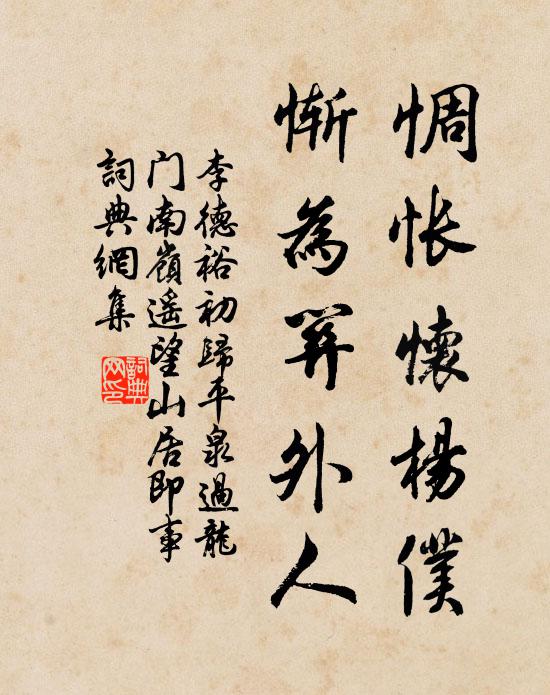 惆怅懷楊僕
慚為關外人
李德裕初歸平泉過龍
门南嶺遥望山居即事
詞典網集
詞典网印